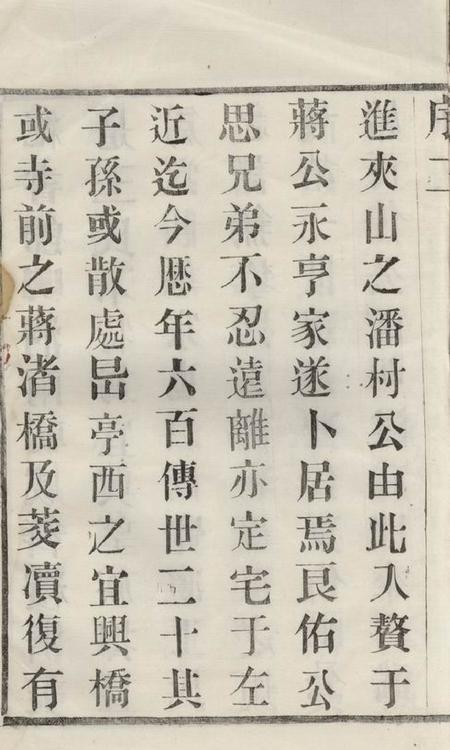 序二
進夾山之潘村公由此入贅于
蔣公永亨家遂卜居焉良佑公
思兄弟不忍遠離亦定宅于左
近迄今歷年六百傳世二十其
子孫或散處岊亭西之宜興橋
或寺前之蔣渚橋及菱瀆復有